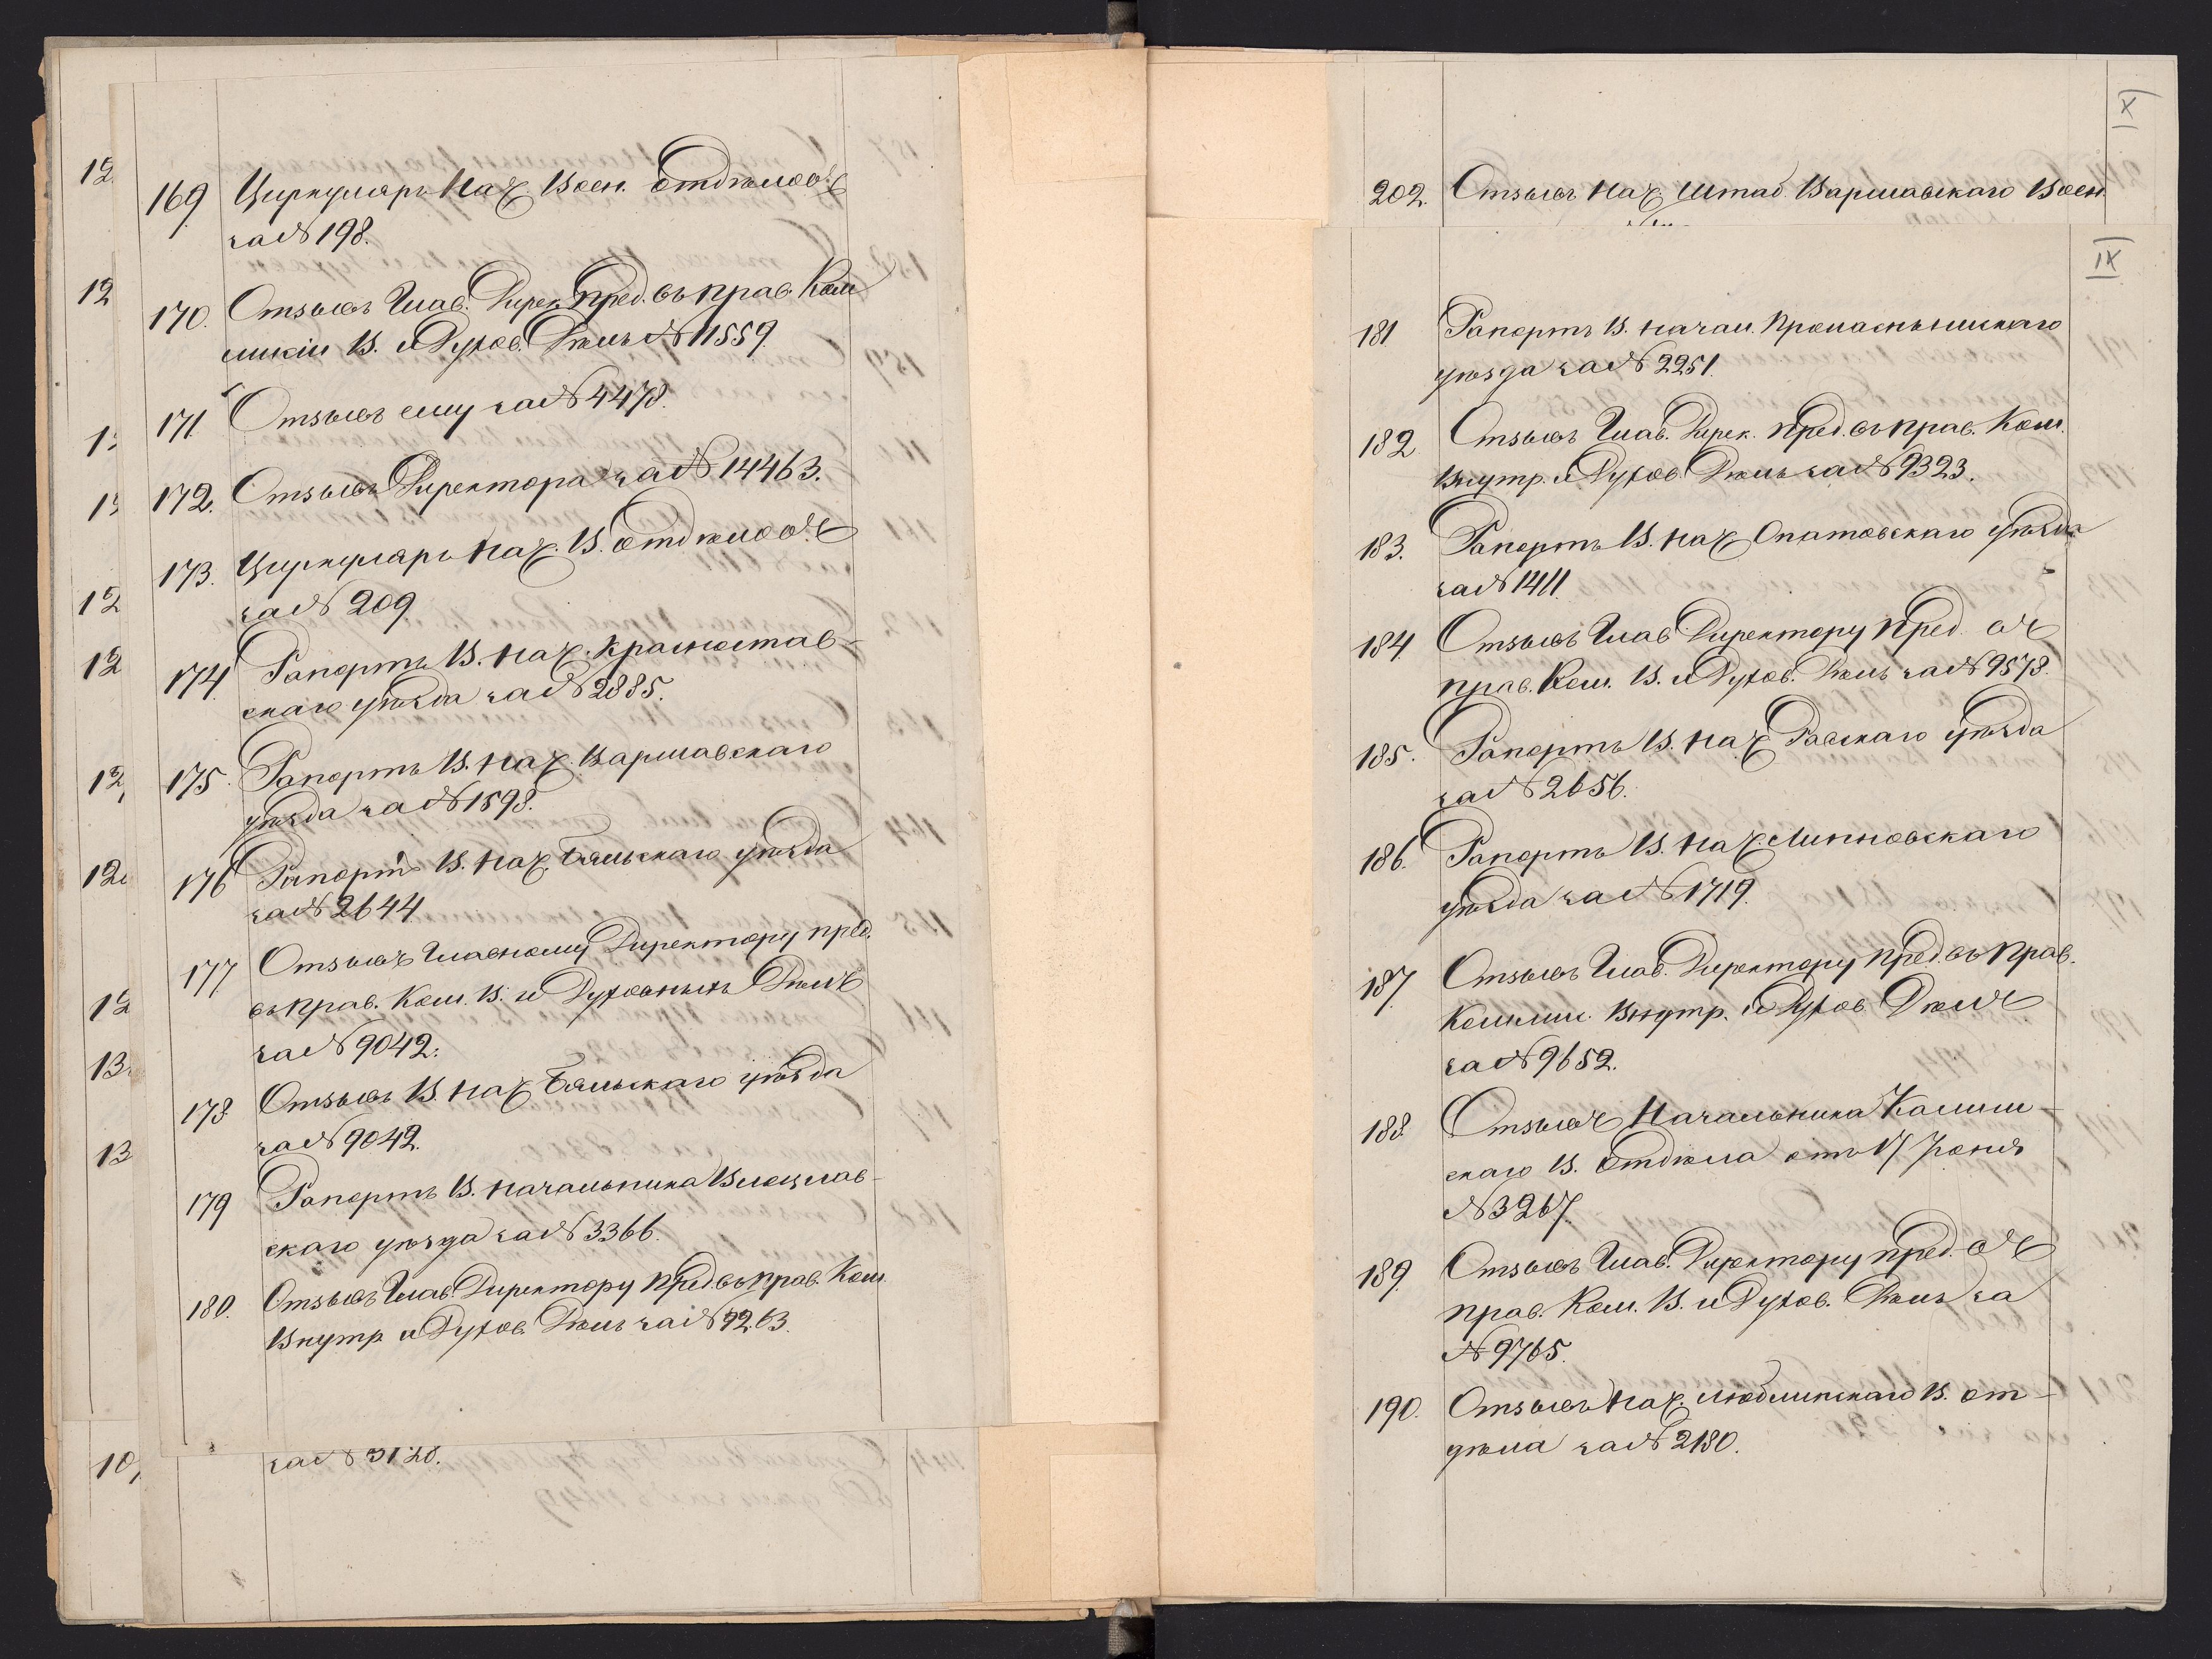 169 Циркуляръ Нач. Воен. Отдѣловъ
за № 198.
170. Отзывъ Глав. Дирек. Пред. въ Прав. Ком
мисіи В. и Духов. Дѣлъ № 11559
171. Отзывъ ему за № 4478.
172. Отзывъ Директора за № 14463.
173. Циркуляръ Нач. В. Отдѣловъ
за № 209
174 Рапортъ В. Нач. Красностав-
скаго уѣзда за № 2885.
175. Рапортъ В. Нач. Варшавскаго
уѣзда за № 1598.
176 Рапортъ В. Нач. Бяльскаго уѣзда
за № 2644
177 Отзывъ Главному Директору Пред.
въ Прав. Ком. В. и Духовныхъ Дѣлъ
за № 9042.
178 Отзывъ В. Нач. Бяльскаго уѣзда
за № 9042.
179 Рапортъ В. Начальника Влоцлав-
скаго уѣзда за № 3366.
180. Отзывъ Глав. Директору Пред. въ Прав. Ком.
Внутр. и Духов. Дѣлъ за № 9263.
за № 3128.
12
12
12
12
12
12
13
13
10
X
202. Отзывъ Нач. Штаб. Варшавскаго Воен.
IX
181 Рапортъ В. Начал. Праснышскаго
уѣзда за № 2251.
182 Отзывъ Глав. Дирек. Пред. въ Прав. Ком.
Внутр. и Духов. Дѣлъ за № 9323.
183. Рапортъ В. Нач. Опатовскаго уѣзда
за № 1411.
184 Отзывъ Глав. Директору Пред. въ
Прав. Ком. В. и Духов. Дѣлъ за № 9578.
185. Рапортъ В. Нач. Равскаго уѣзда
за № 2656.
186. Рапортъ В. Нач. Липновскаго
уѣзда за № 1719.
187 Отзывъ Глав. Директору Пред. въ Прав.
Коммис. Внутр. и Духов. Дѣлъ
за № 9652.
188. Отзывъ Начальника Калиш-
скаго В. Отдѣла отъ 17 Іюня
№ 3267.
189. Отзывъ Глав. Директору Пред. въ
Прав. Ком. В. и Духов. Дѣлъ за
№ 9765.
190. Отзывъ Нач. Люблинскаго В. От-
дѣла за № 2180.